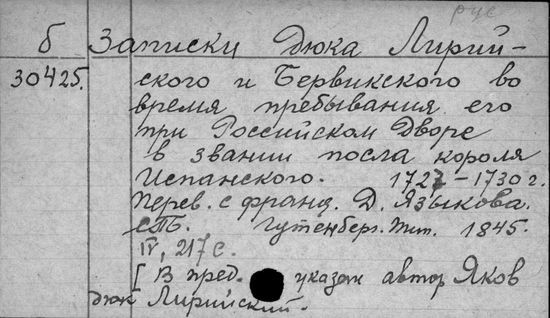 рус
б Записки дюка Лирий-
30425. ского и Бервикского во
время пребывания его
при Российском Дворе
в звании посла короля
Испанского. 1727-1730 г.
Перев. с франц. Д. Языкова.
СПб. Гутенберг. тип. 1845.
IV, 217 с.
[В пред. указан автор Яков
дюк Лирийский.